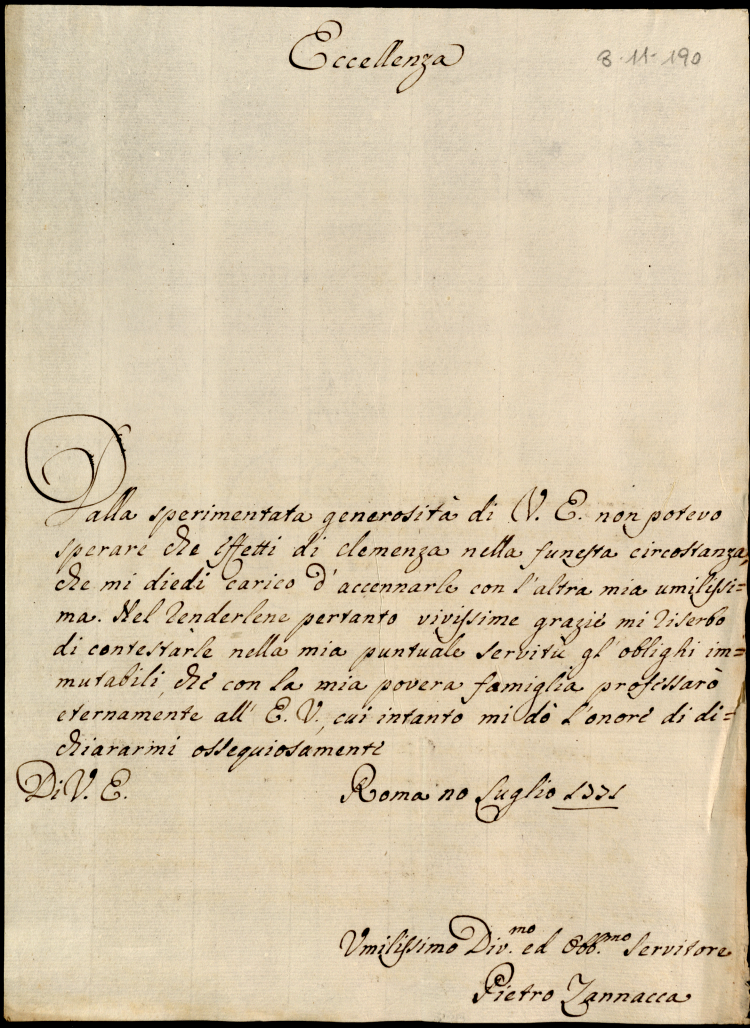 Eccellenza
3-11-190
Dalla sperimentata generosità di V. E. non potevo
sperare che effetti di clemenza nella funesta circostanza,
che mi diedi carico d'accennarle con l'altra mia umilissi=
ma. Nel renderlene pertanto vivissime grazie mi riserbo
di contestarle nella mia puntuale servitù gl'oblighi im=
mutabili, che con la mia povera famiglia professarò
eternamente all' E. V., cui intanto mi dò l'onore di di=
chiararmi ossequiosamente
Di V. E.
Roma Luglio 1771
Umilissimo Div.mo ed Obb.mo Servitore
Pietro Zannacca